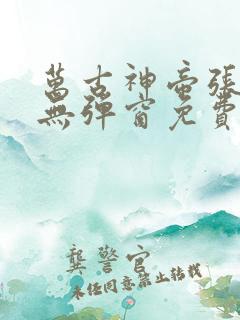 萬古神帝張
無彈窗免費
龔警官
未经同意禁止转载